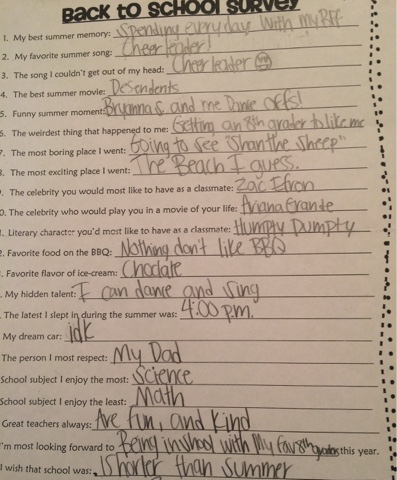 BACK TO SCHOOL SURVEY
1. My best summer memory: Spending everyday with my BFF
2. My favorite summer song: Cheerleader!
3. The song I couldn't get out of my head: Cheerleader
4. The best summer movie: Desendents
5. Funny summer moment: Bryanna & and me Dance offs!
6. The weirdest thing that happened to me: Getting an 8th grader to like me
7. The most boring place I went: Going to see "Shan the sheep"
8. The most exciting place I went: The Beach I guess.
9. The celebrity you would most like to have as a classmate: Zac Efron
0. The celebrity who would play you in a movie of your life: Ariana Grande
. Literary character you'd most like to have as a classmate: Humpty Dumpty
2. Favorite food on the BBQ: Nothing don't like BBQ
. Favorite flavor of ice-cream: Choclate
. My hidden talent: I can dance and sing
The latest I slept in during the summer was: 4:00 p.m.
My dream car: idk
The person I most respect: My Dad
School subject I enjoy the most: Science
School subject I enjoy the least: Math
Great teachers always: Are fun, and kind
I'm most looking forward to Being in shool with My fav 8th graders this year.
I wish that school was: Shorter than summer